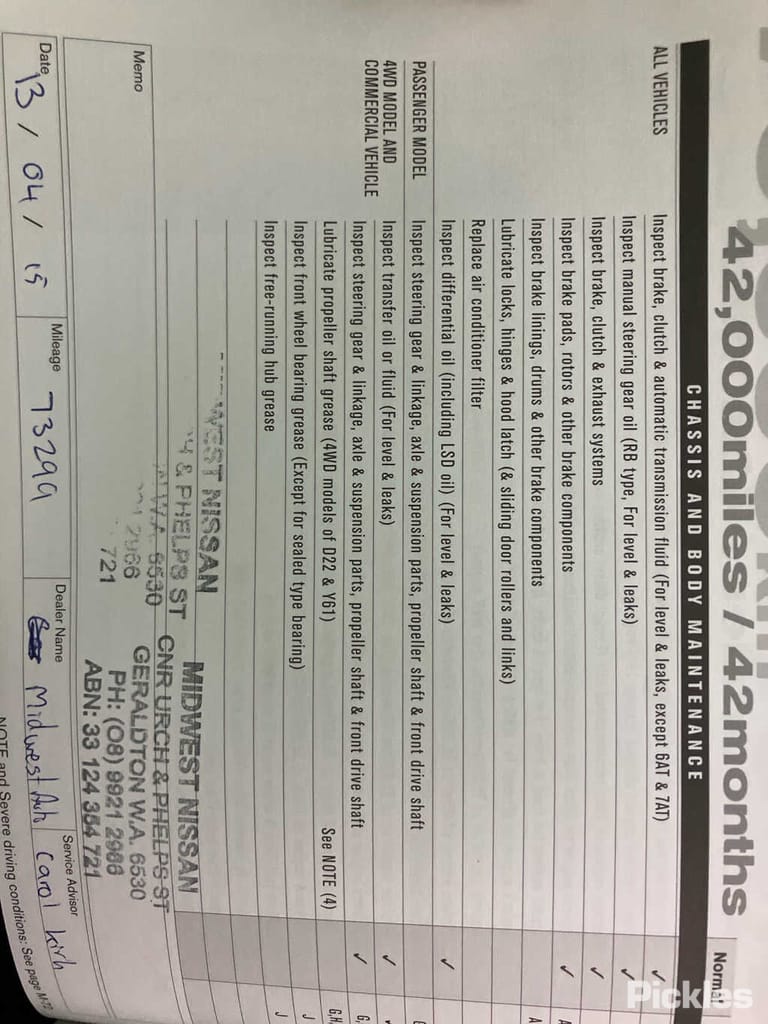 42,000miles / 42months
Normal
CHASSIS AND BODY MAINTENANCE
ALL VEHICLES
Inspect brake, clutch & automatic transmission fluid (For level & leaks, except 6AT & 7AT) ✓
Inspect manual steering gear oil (RB type, For level & leaks) ✓
Inspect brake, clutch & exhaust systems ✓
Inspect brake pads, rotors & other brake components ✓
Inspect brake linings, drums & other brake components
Lubricate locks, hinges & hood latch (& sliding door rollers and links)
Replace air conditioner filter
Inspect differential oil (including LSD oil) (For level & leaks) ✓
PASSENGER MODEL Inspect steering gear & linkage, axle & suspension parts, propeller shaft & front drive shaft
4WD MODEL AND Inspect transfer oil or fluid (For level & leaks) ✓
COMMERCIAL VEHICLE Inspect steering gear & linkage, axle & suspension parts, propeller shaft & front drive shaft ✓
Lubricate propeller shaft grease (4WD models of D22 & Y61) See NOTE (4) G,H,
Inspect front wheel bearing grease (Except for sealed type bearing) J
Inspect free-running hub grease J
WEST NISSAN
& PHELPS ST
W.A. 6530
2966
721
MIDWEST NISSAN
CNR URCH & PHELPS ST
GERALDTON W.A. 6530
PH: (08) 9921 2966
ABN: 33 124 354 721
Memo
Date 13 / 04 / 15
Mileage 73299
Dealer Name Midwest Auto
Service Advisor Carol
NOTE and Severe driving conditions: See page M-72
Pickles